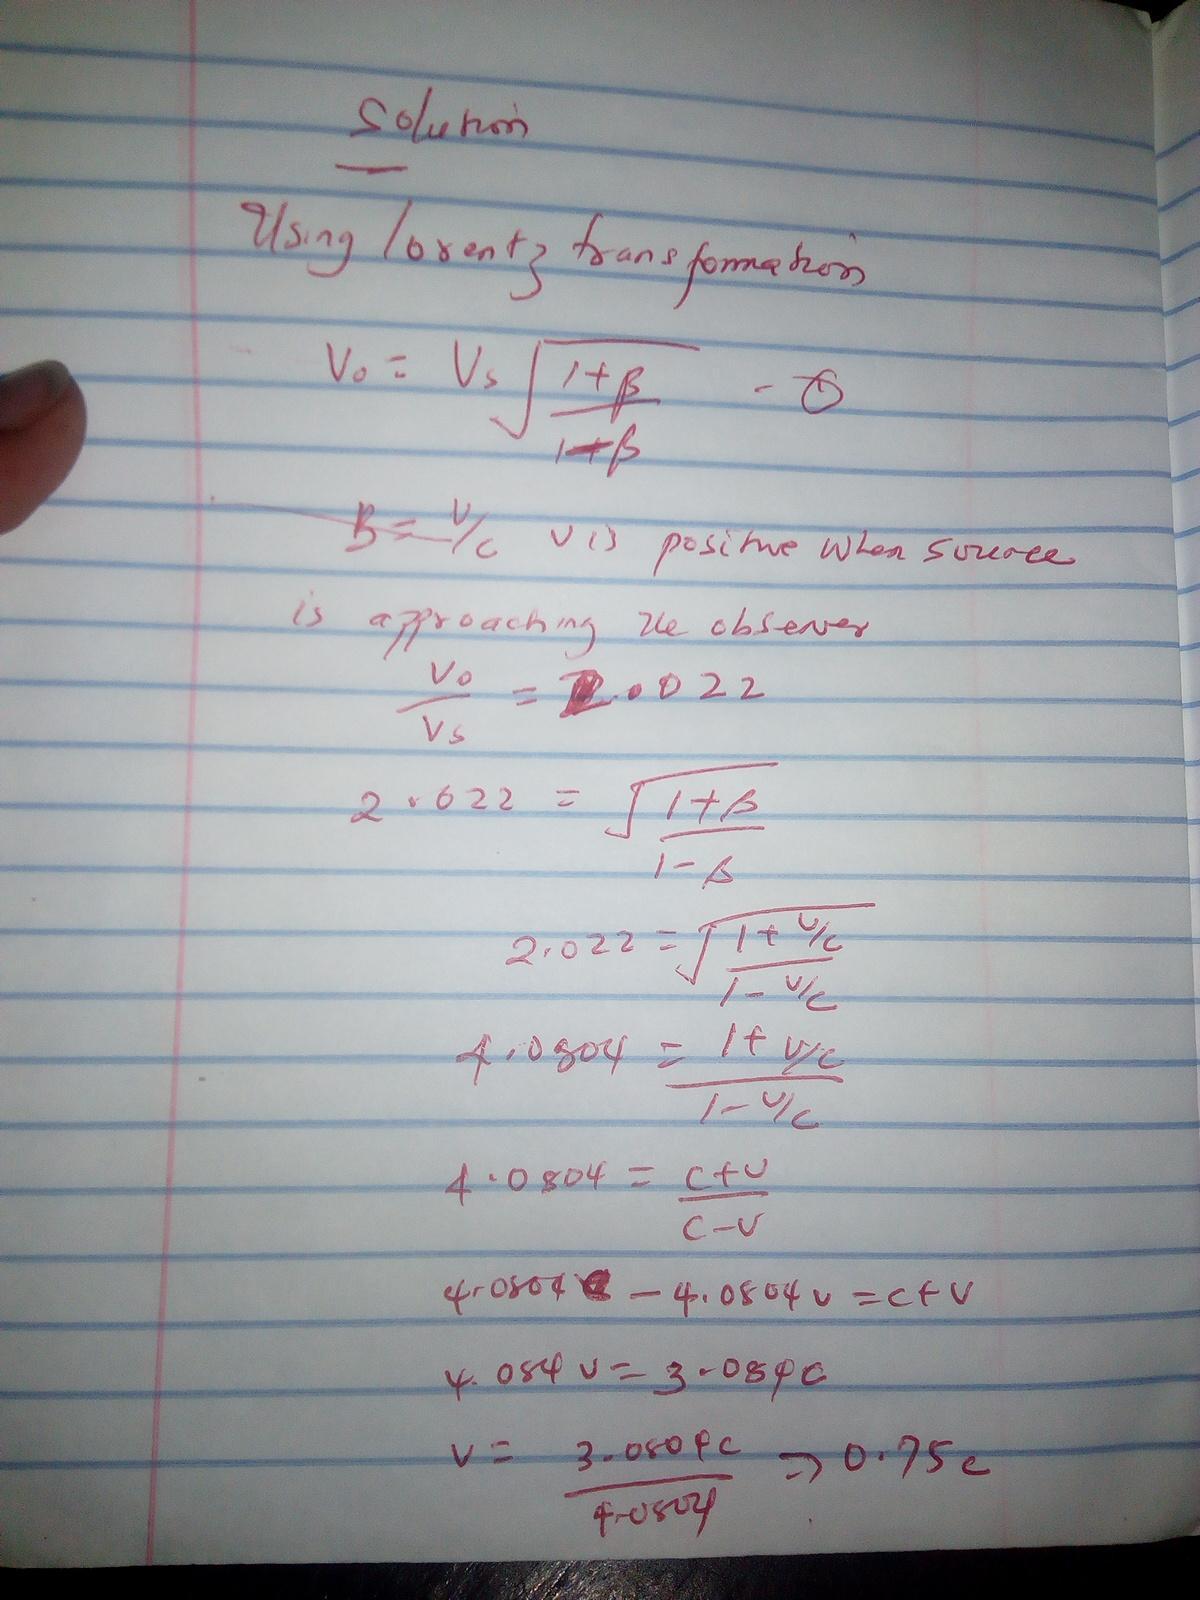 Solution
Using lorentz transformation
Vo = Vs √(1+β / 1-β) - ①
β = v/c v is positive when source
is approaching the observer
Vo/Vs = 2.022
2.022 = √(1+β / 1-β)
2.022 = √(1+v/c / 1-v/c)
4.0804 = 1+v/c / 1-v/c
4.0804 = c+v / c-v
4.0804c - 4.0804v = c+v
4.084v = 3.084c
v = 3.0804c / 4.0804 => 0.75c